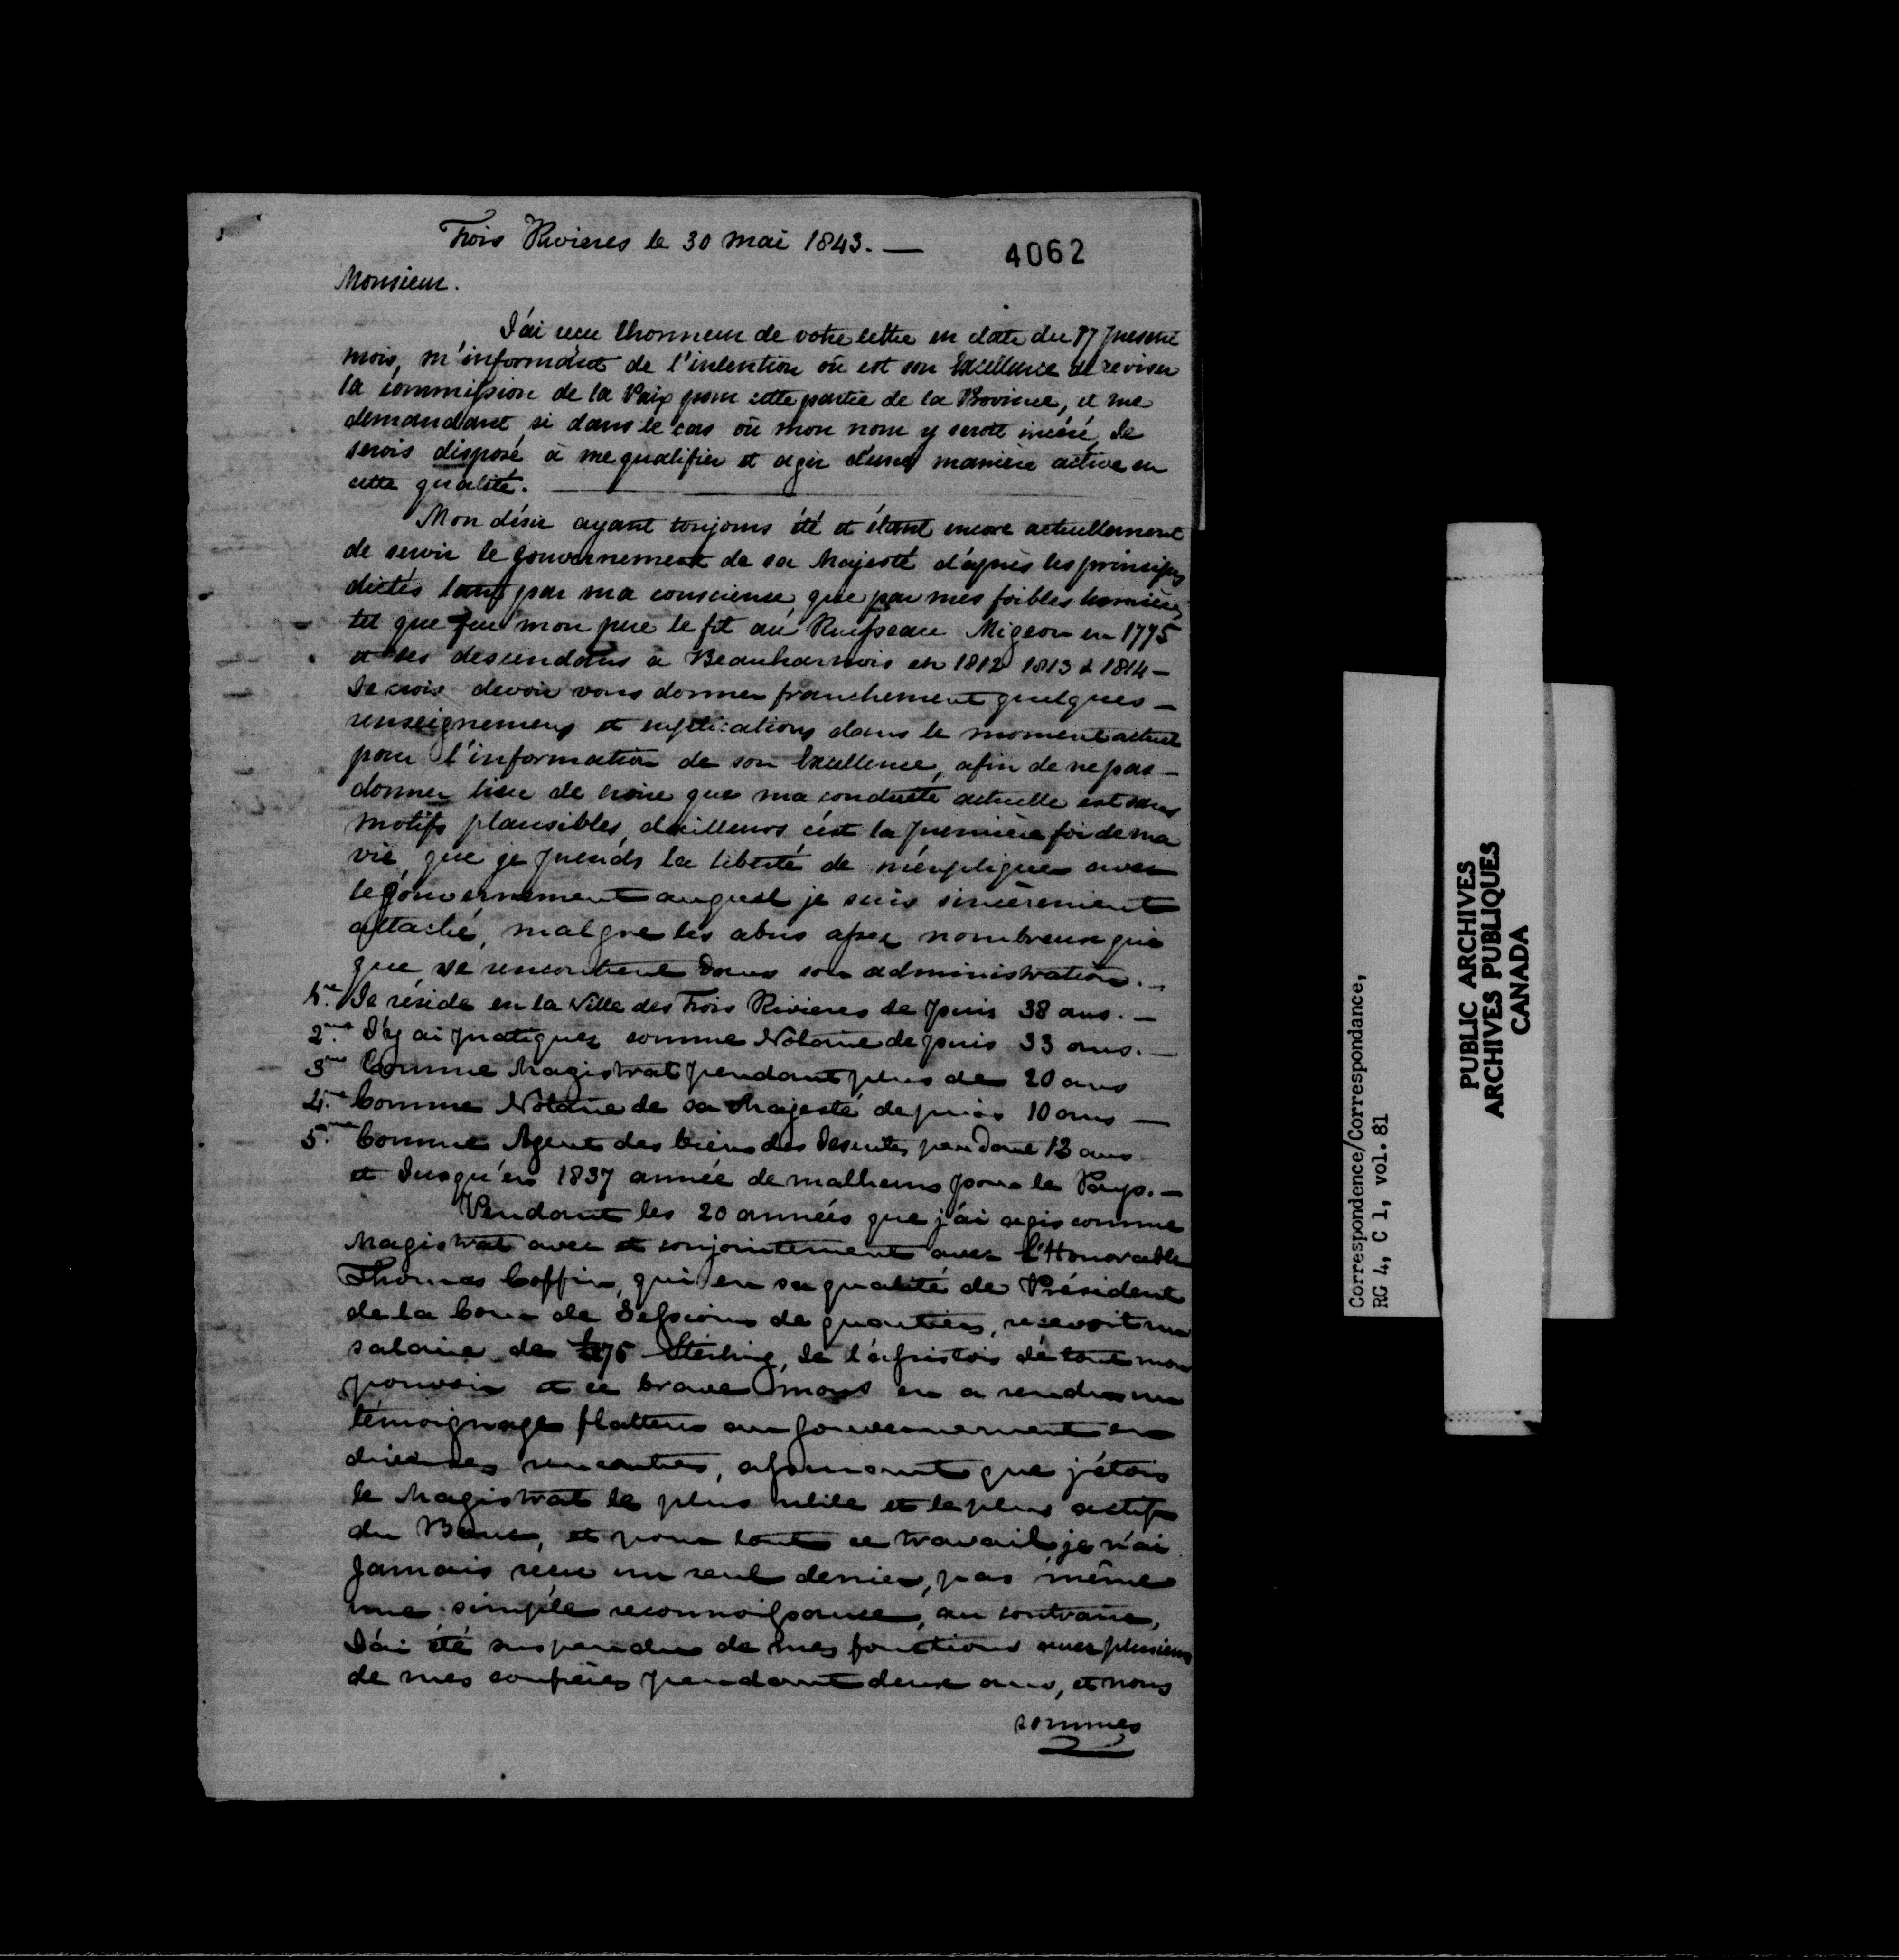 Trois Rivieres le 30 mai 1843. —
4062
Monsieur.
J'ai recu l'honneur de votre lettre en date du 17 présent
mois, m'informant de l'intention où est son Excellence de reviser
la commission de la Paix pour cette partie de la Province, et me
demandant si dans le cas où mon nom y seroit inséré, Je
serois disposé à me qualifier et agir d'une manière active en
cette qualité. —
Mon désir ayant toujours été et étant encore actuellement
de servir le gouvernement de sa Majesté d'après les principes
dictés tant par ma conscience, que par mes foibles lumières,
tel que feu mon pere le fit au Ruisseau Migeon en 1775
et ses descendans à Beauharnois en 1812 1813 & 1814 —
Je crois devoir vous donner franchement quelques —
renseignemens et explications dans le moment actuel
pour l'information de son Excellence, afin de ne pas —
donner lieu de croire que ma conduite actuelle est sans
motifs plausibles, d'ailleurs c'est la première foi de ma
vie que je prends la liberté de m'expliquer avec
le gouvernement auquel je suis sincèrement
attaché, malgré les abus assez nombreux qui
que se rencontrent dans son administration. —
1.re Je réside en la Ville des Trois Rivieres depuis 38 ans. —
2.me J'y ai pratiquez comme Notaire depuis 33 ans. —
3.me Comme Magistrat pendant plus de 20 ans
4.me Comme Notaire de sa Majesté depuis 10 ans —
5.me Comme Agent des biens des Jesuites pendant 13 ans
et Jusqu'en 1837 année de malheurs pour le Pays. —
Pendant les 20 années que j'ai agis comme
Magistrat avec et conjointement avec l'Honorable
Thomas Coffin, qui en sa qualité de Président
de la Cour de Sessions de quartiers, recevoit un
salaire de £ 75 Sterling, Je l'assistois de tout mon
pouvoir et ce brave mort en a rendu un
témoignage flatteur au Gouvernement en
diverses rencontres, assurant que j'étois
le Magistrat le plus utile et le plus actif
du Banc, et pour tout ce travail, je n'ai
Jamais recu un seul denier, pas même
une simple reconnoissance, au contraire,
J'ai été suspendu de mes fonctions avec plusieurs
de mes confrères pendant deux ans, et nous
sommes
Correspondence/Correspondance,
RG 4, C 1, vol. 81
PUBLIC ARCHIVES
ARCHIVES PUBLIQUES
CANADA